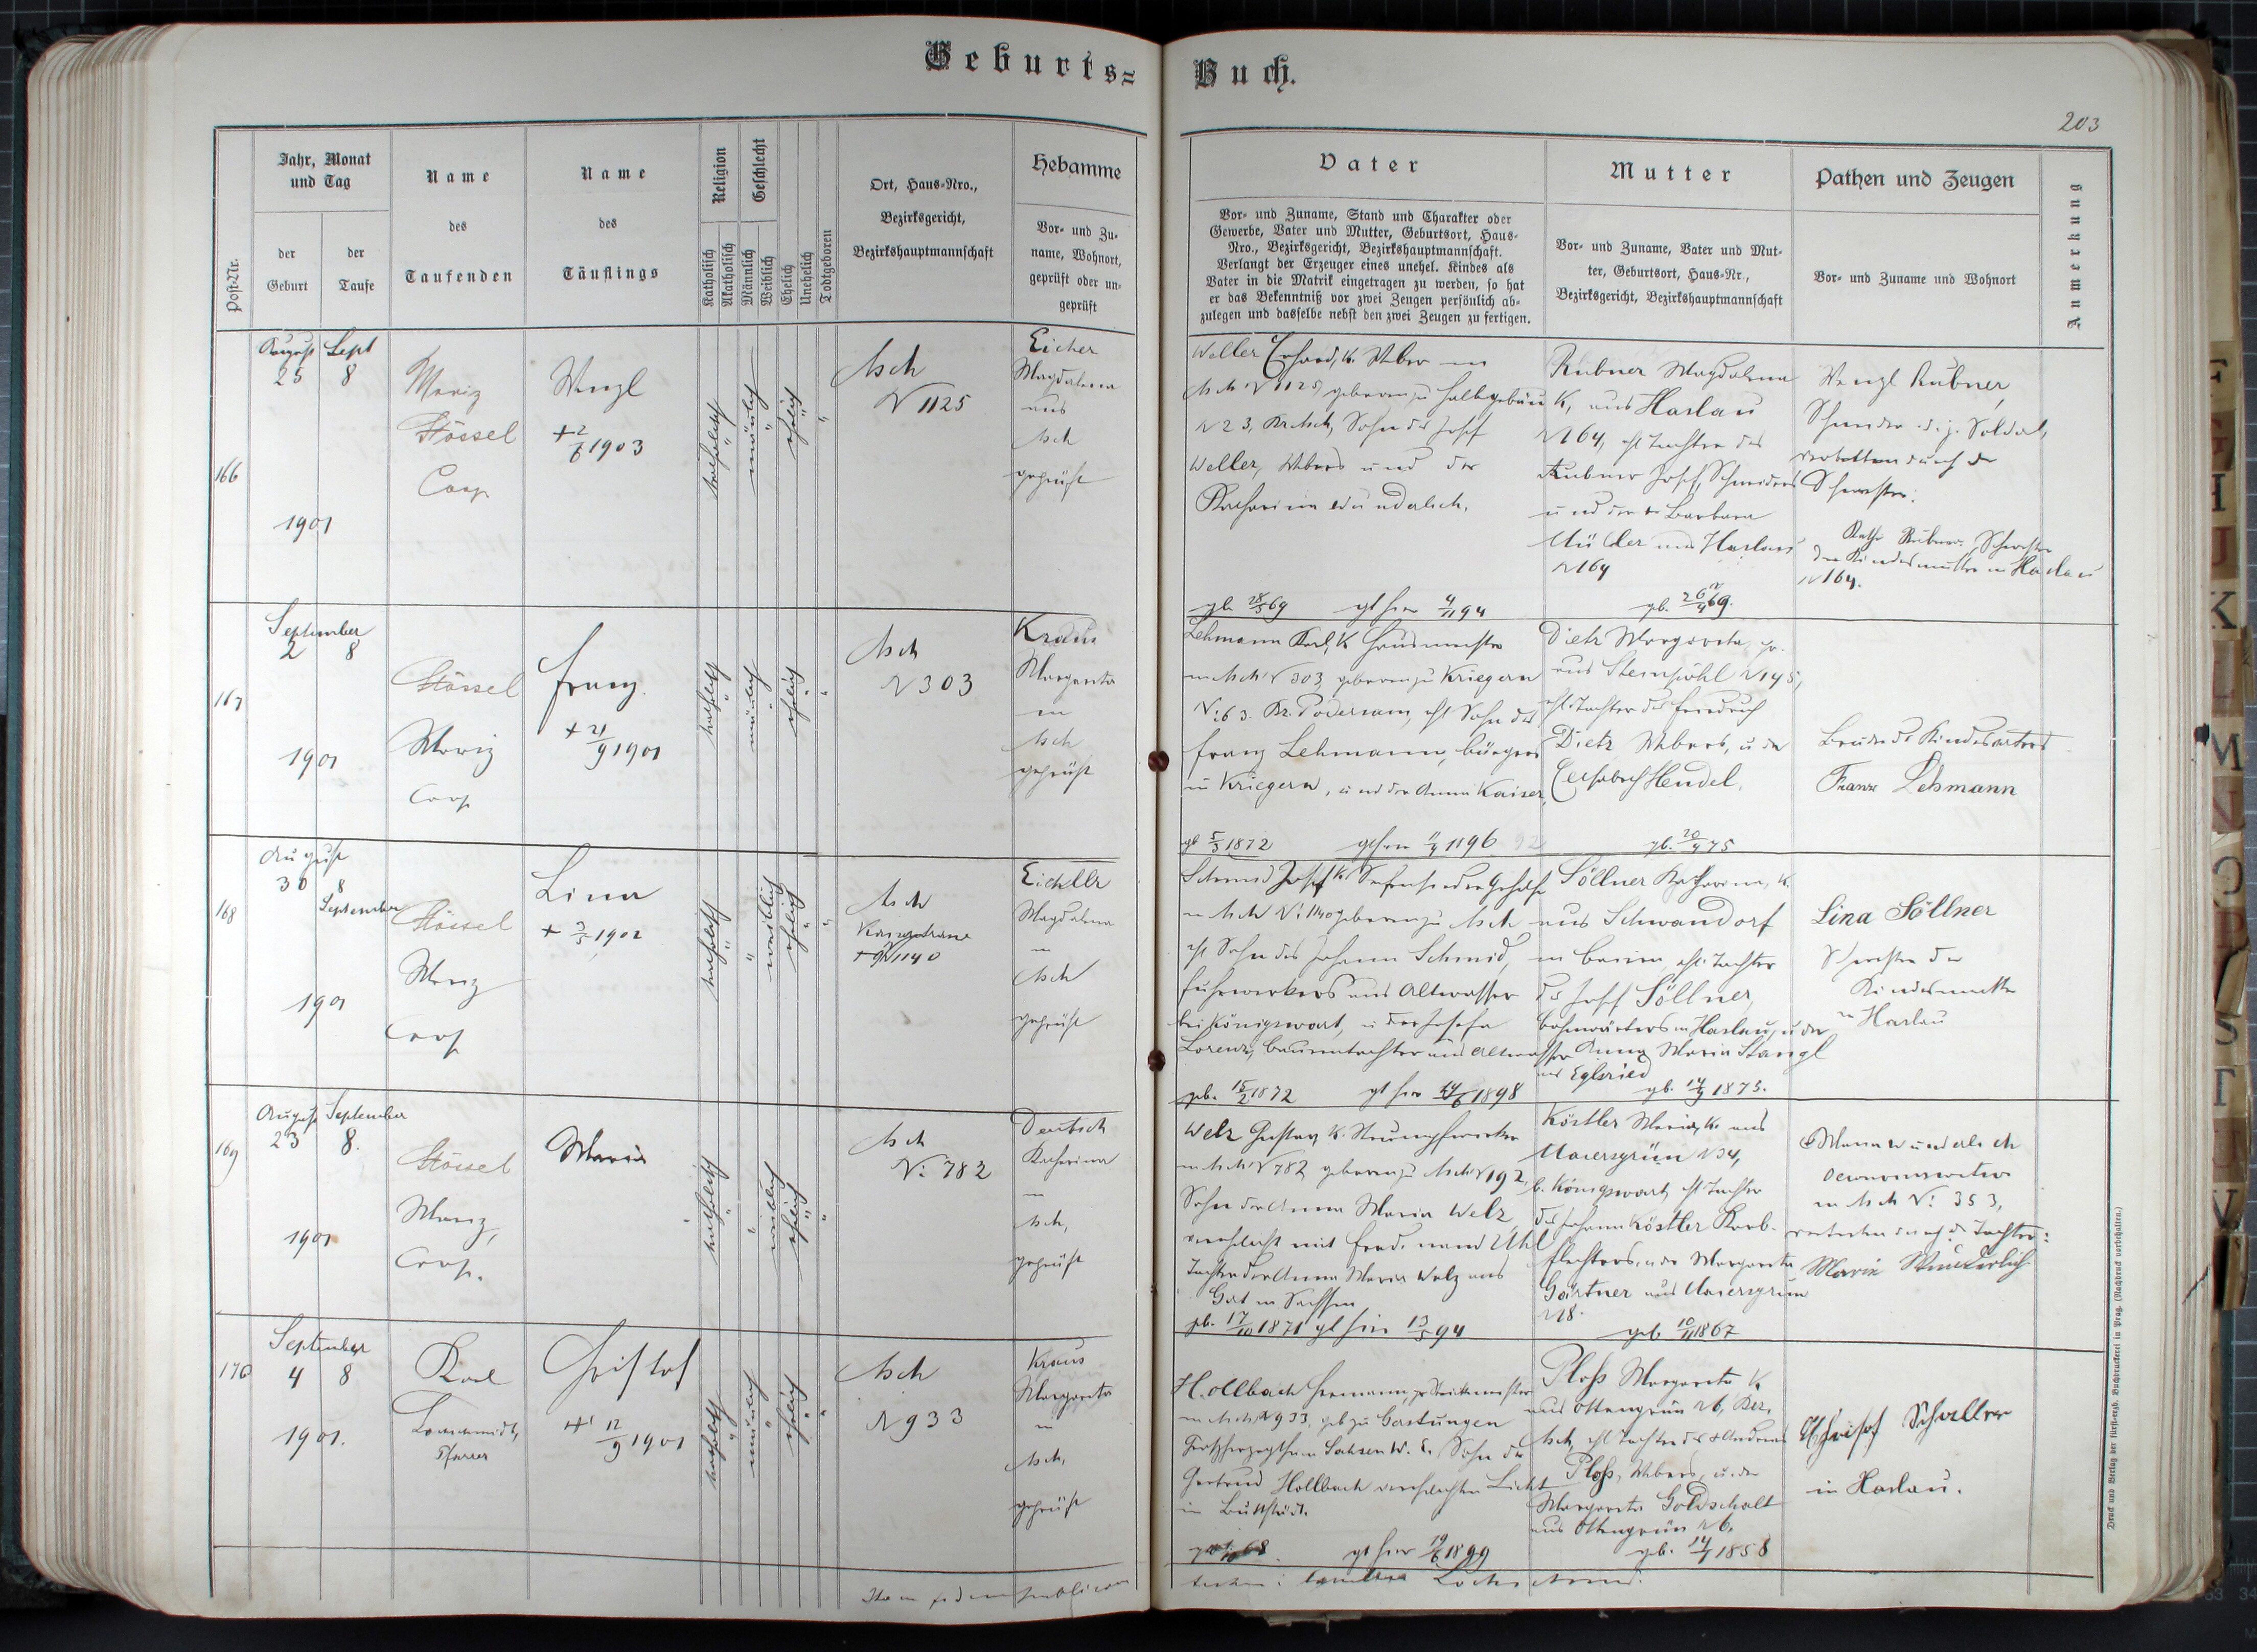 Geburts=
Buch.
203
Post-Nr.
Jahr, Monat
und Tag
der
Geburt
der
Taufe
Name
des
Taufenden
Name
des
Täuflings
Religion
Katholisch
Akatholisch
Geschlecht
Männlich
Weiblich
Ehelich
Unehelich
Todtgeboren
Ort, Haus-Nro.,
Bezirksgericht,
Bezirkshauptmannschaft
Hebamme
Vor- und Zu-
name, Wohnort,
geprüft oder un-
geprüft
Vater
Vor- und Zuname, Stand und Charakter oder
Gewerbe, Vater und Mutter, Geburtsort, Haus-
Nro., Bezirksgericht, Bezirkshauptmannschaft.
Verlangt der Erzeuger eines unehel. Kindes als
Vater in die Matrik eingetragen zu werden, so hat
er das Bekenntniß vor zwei Zeugen persönlich ab-
zulegen und dasselbe nebst den zwei Zeugen zu fertigen.
Mutter
Vor- und Zuname, Vater und Mut-
ter, Geburtsort, Haus-Nr.,
Bezirksgericht, Bezirkshauptmannschaft
Pathen und Zeugen
Vor- und Zuname und Wohnort
Anmerkung
166
August Sept
25 8
1901
Moriz
Stössel
Coop.
Wenzl
+ 2/6 1903
katholisch
männlich
ehelich
Asch
N 1125
Eicher
Magdalena
aus
Asch
geprüft
Weller Erhard, k. Weber in
Asch N 1125, geboren zu Halbgebäu
N 23, Bz. Asch, Sohn des Josef
Weller, Webers und der
Katharina Wunderlich.
gb. 28/5 69 gt hier 4/11 94
Rubner Magdalena
K, aus Haslau
N 164, ehl Tochter des
Rubner Josef, Schneiders
und der Barbara
Müller aus Haslau
N 164
Wenzl Rubner,
Schneider d. z. Soldat,
vertretten durch die
Schwester:
Kathi Rubner, Schwester
der Kindesmutter in Haslau
N 164.
167
September
2 8
1901
Stössel
Moriz
Coop.
Franz.
+ 21/9 1901
katholisch
männlich
ehelich
Asch
N 303
Kraus
Margareta
in
Asch
geprüft
Lehmann Karl, K Hausmeister
in Asch N 303, geboren zu Kriegern
N: 63. Bz. Podersam, ehl Sohn des
Franz Lehmann, Bürgers
in Kriegern, und der Anna Kaiser,
gb 5/3 1872
Dietz Margareta, pr.
aus Steinpöhl N 145,
ehl. Tochter des Friedrich
Dietz Webers, u der
Elisabeth Hendel.
gb. 20/4 75
Bruder d Kindesvaters
Franz Lehmann
168
August
30 8
September
1901
Stössel
Moriz
Coop
Lina
+ 3/5 1902
katholisch
weiblich
ehelich
Asch
N 1140
Eichler
Magdalena
in
Asch
geprüft
Schmid Josef k. Seifensieder Gehilfe
in Asch N: 1140 geboren zu Asch
ehl Sohn des Johann Schmid,
Fuhrwerkers aus Altwasser
bei Königswart, u der Josefa
Lorenz, Bauerntochter aus Altwasser
geb. 15/2 1872
Söllner Katharina, k.
aus Schwandorf
in Baiern, ehl. Tochter
des Josef Söllner,
Bahnwärters in Haslau, u der
Anna Maria Stangl
aus Eglsried
gb. 14/9 1873.
Lina Söllner
Schwester der
Kindesmutter
in Haslau
169
August September
23 8.
1901
Stössel
Moriz,
Coop.
Maria
katholisch
weiblich
ehelich
Asch
N: 782
Deutsch
Katharina
in
Asch,
geprüft
Welz Gustav, k. Strumpfwirker
in Asch N 782, geboren zu Asch N 192,
Sohn der Anna Maria Welz,
verehelicht mit Ferdinand Uhl
Tochter der Anna Maria Welz aus
in Sachsen
gb. 17/10 1871 gt hier 13/5 94
Köstler Maria, k. aus
Maiersgrün N 34,
b. Königswart, ehl Tochter
des Johann Köstler Korb-
flechters, u der Margareta
Gärtner aus Maiersgrün
N 18.
geb. 10/11 1867
Maria Wunderlich
in Asch N: 353,
vertreten durch d. Tochter:
Marie Wunderlich
170
September
4 8
1901.
Karl
Lochschmidt,
Pfarrer
Christof
+ 12/9 1901
katholisch
männlich
ehelich
Asch
N 933
Kraus
Margareta
in
Asch,
geprüft
Hollbach Hermann, pr Strickmeister
in Asch N 933, geb zu Gerstungen
Großherzogthum Sachsen W. E., Sohn der
Gertrud Hollbach verehelichten Licht
in Buttstädt.
gt hier 19/6 1899
Ploß Margareta K,
aus Ottengrün N 6, Bez.
Asch, ehl Tochter des + Andreas
Ploß, Webers, u. der
Margareta Goldschalt
aus Ottengrün N 6.
gb. 14/1 1858
Christof Schaller
in Haslau.
Druck und Verlag der fürst-erzb. Buchdruckerei in Prag. (Nachdruck vorbehalten.)